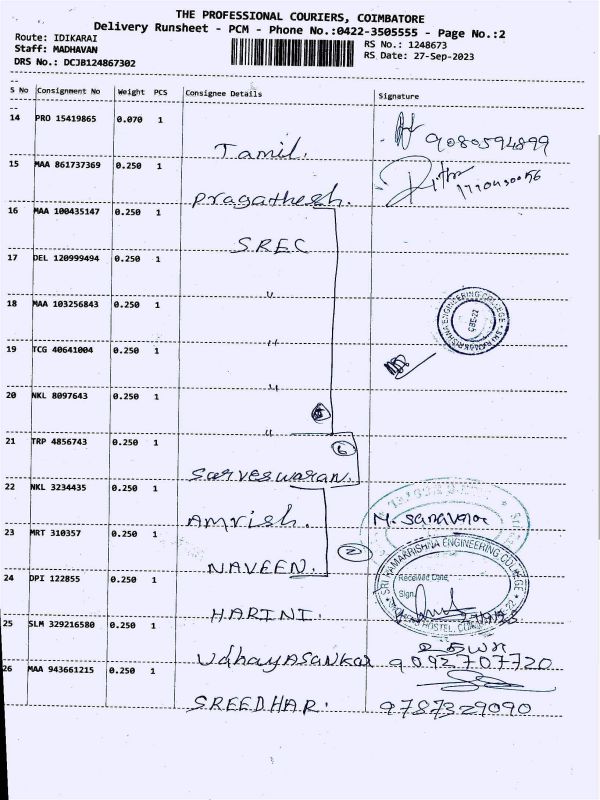 THE PROFESSIONAL COURIERS, COIMBATORE
Delivery Runsheet - PCM - Phone No.:0422-3505555 - Page No.:2
Route: IDIKARAI
RS No.: 1248673
Staff: MADHAVAN
RS Date: 27-Sep-2023
DRS No.: DCJB124867302
S No Consignment No Weight PCS Consignee Details Signature
14 PRO 15419865 0.070 1
Tamil. 9080594899
15 MAA 861737369 0.250 1
Pragatheesh.
16 MAA 100435147 0.250 1
SREC
17 DEL 120999494 0.250 1
"
18 MAA 103256843 0.250 1
SRI RAMAKRISHNA ENGINEERING COLLEGE
CBE-22
19 TCG 40641004 0.250 1
"
20 NKL 8097643 0.250 1
"
5
21 TRP 4856743 0.250 1
"
6
Sarveswaran.
22 NKL 3234435 0.250 1
Amrish.
23 MRT 310357 0.250 1
2
NAVEEN.
SRI RAMAKRISHNA ENGINEERING COLLEGE
Received Date
Sign.
24 DPI 122855 0.250 1
HARINI.
25 SLM 329216580 0.250 1
Udhayasankar 9092707720
26 MAA 943661215 0.250 1
SREEDHAR. 9787329090